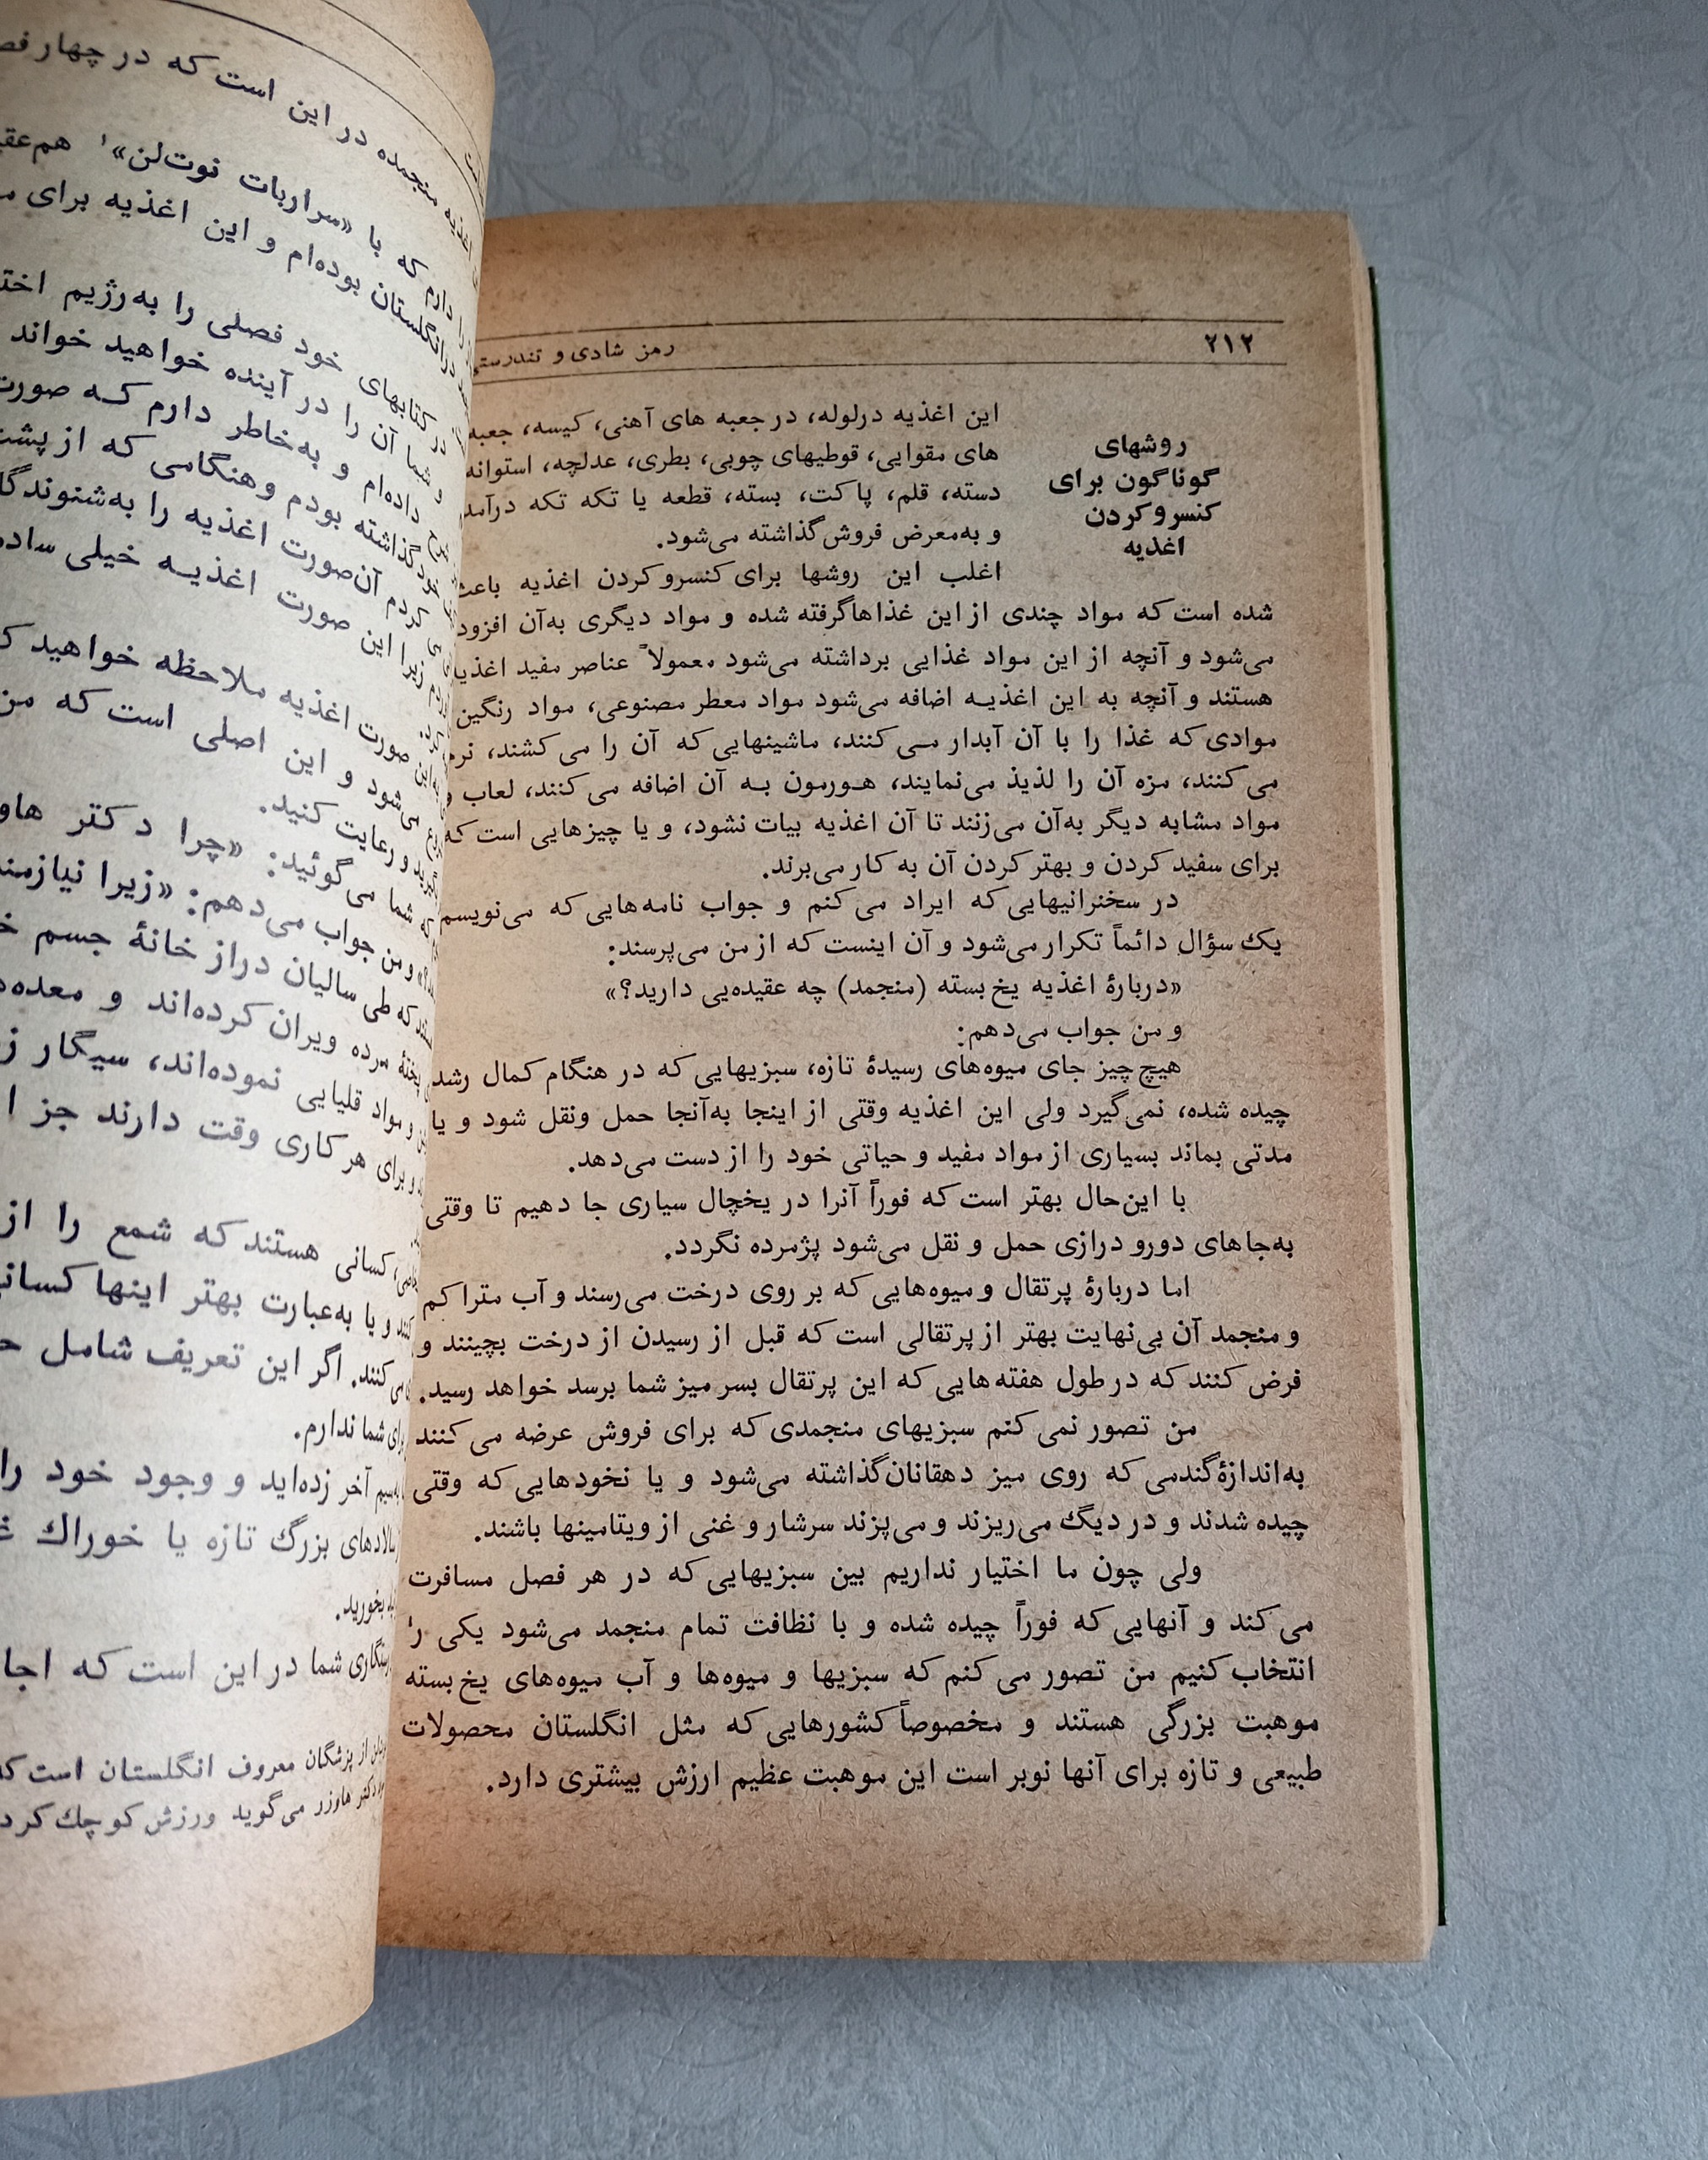 ۲۱۲
رمز شادی و تندرستی
روشهای
گوناگون برای
کنسروکردن
اغذیه
این اغذیه درلوله، در جعبه های آهنی، کیسه، جعبه
های مقوایی، قوطیهای چوبی، بطری، عدلچه، استوانه
دسته، قلم، پاکت، بسته، قطعه یا تکه تکه درآمد
و به‌معرض فروش‌گذاشته می‌شود.
اغلب این روشها برای کنسروکردن اغذیه باعث
شده است که مواد چندی از این غذاهاگرفته شده و مواد دیگری به‌آن افزود
می‌شود و آنچه از این مواد غذایی برداشته می‌شود معمولاً عناصر مفید اغذیا
هستند و آنچه به این اغذیه اضافه می‌شود مواد معطر مصنوعی، مواد رنگین
موادی که غذا را با آن آبدار می‌کنند، ماشینهایی که آن را می‌کشند، نرم
می‌کنند، مزه آن را لذیذ می‌نمایند، هورمون به آن اضافه می‌کنند، لعاب و
مواد مشابه دیگر به‌آن می‌زنند تا آن اغذیه بیات نشود، و یا چیزهایی است که
برای سفید کردن و بهتر کردن آن به کار می‌برند.
در سخنرانیهایی که ایراد می‌کنم و جواب نامه‌هایی که می‌نویسم
یک سؤال دائماً تکرار می‌شود و آن اینست که از من می‌پرسند:
«دربارهٔ اغذیه یخ بسته (منجمد) چه عقیده‌یی دارید؟»
و من جواب می‌دهم:
هیچ چیز جای میوه‌های رسیدهٔ تازه، سبزیهایی که در هنگام کمال رشد
چیده شده، نمی‌گیرد ولی این اغذیه وقتی از اینجا به‌آنجا حمل ونقل شود و یا
مدتی بماند بسیاری از مواد مفید و حیاتی خود را از دست می‌دهد.
با این‌حال بهتر است که فوراً آنرا در یخچال سیاری جا دهیم تا وقتی
به‌جاهای دورو درازی حمل و نقل می‌شود پژمرده نگردد.
اما دربارهٔ پرتقال و میوه‌هایی که بر روی درخت می‌رسند و آب متراکم
و منجمد آن بی‌نهایت بهتر از پرتقالی است که قبل از رسیدن از درخت بچینند و
فرض کنند که در طول هفته‌هایی که این پرتقال بسر میز شما برسد خواهد رسید.
من تصور نمی‌کنم سبزیهای منجمدی که برای فروش عرضه می‌کنند
به‌اندازهٔ‌گندمی که روی میز دهقانان‌گذاشته می‌شود و یا نخودهایی که وقتی
چیده شدند و در دیگ می‌ریزند و می‌پزند سرشار و غنی از ویتامینها باشند.
ولی چون ما اختیار نداریم بین سبزیهایی که در هر فصل مسافرت
می‌کند و آنهایی که فوراً چیده شده و با نظافت تمام منجمد می‌شود یکی را
انتخاب کنیم من تصور می‌کنم که سبزیها و میوه‌ها و آب میوه‌های یخ بسته
موهبت بزرگی هستند و مخصوصاً کشورهایی که مثل انگلستان محصولات
طبیعی و تازه برای آنها نوبر است این موهبت عظیم ارزش بیشتری دارد.
اغذیه منجمده در این است که در چهار
دارم که با «سراربات نوت‌لن»۱
درانگلستان بوده‌ام و این اغذیه برای
در کتابهای خود فصلی را به‌رژیم
و شما آن را در آینده خواهید خواند
داده‌ام و به‌خاطر دارم که صورت
خودگذاشته بودم و هنگامی که از پشت
کردم آن‌صورت اغذیه را به‌شنوندگان
زیرا این صورت اغذیه خیلی ساده
صورت اغذیه ملاحظه خواهید
می‌شود و این اصلی است که من
و رعایت کنید.
که شما می‌گوئید: «چرا دکتر
و من جواب می‌دهم: «زیرا
که طی سالیان دراز خانهٔ جسم
مرده ویران کرده‌اند و
و مواد قلیایی نموده‌اند، سیگار
و برای هر کاری وقت دارند جز
کسانی هستند که شمع را از
کنند و یا به‌عبارت بهتر اینها
می‌کنند. اگر این تعریف شامل
برای شما ندارم.
آخر زده‌اید و وجود خود را
سالادهای بزرگ تازه یا خوراک
بخورید.
رستگاری شما در این است که
از پزشگان معروف انگلستان است که
دکتر هاوزر می‌گوید ورزش کوچک